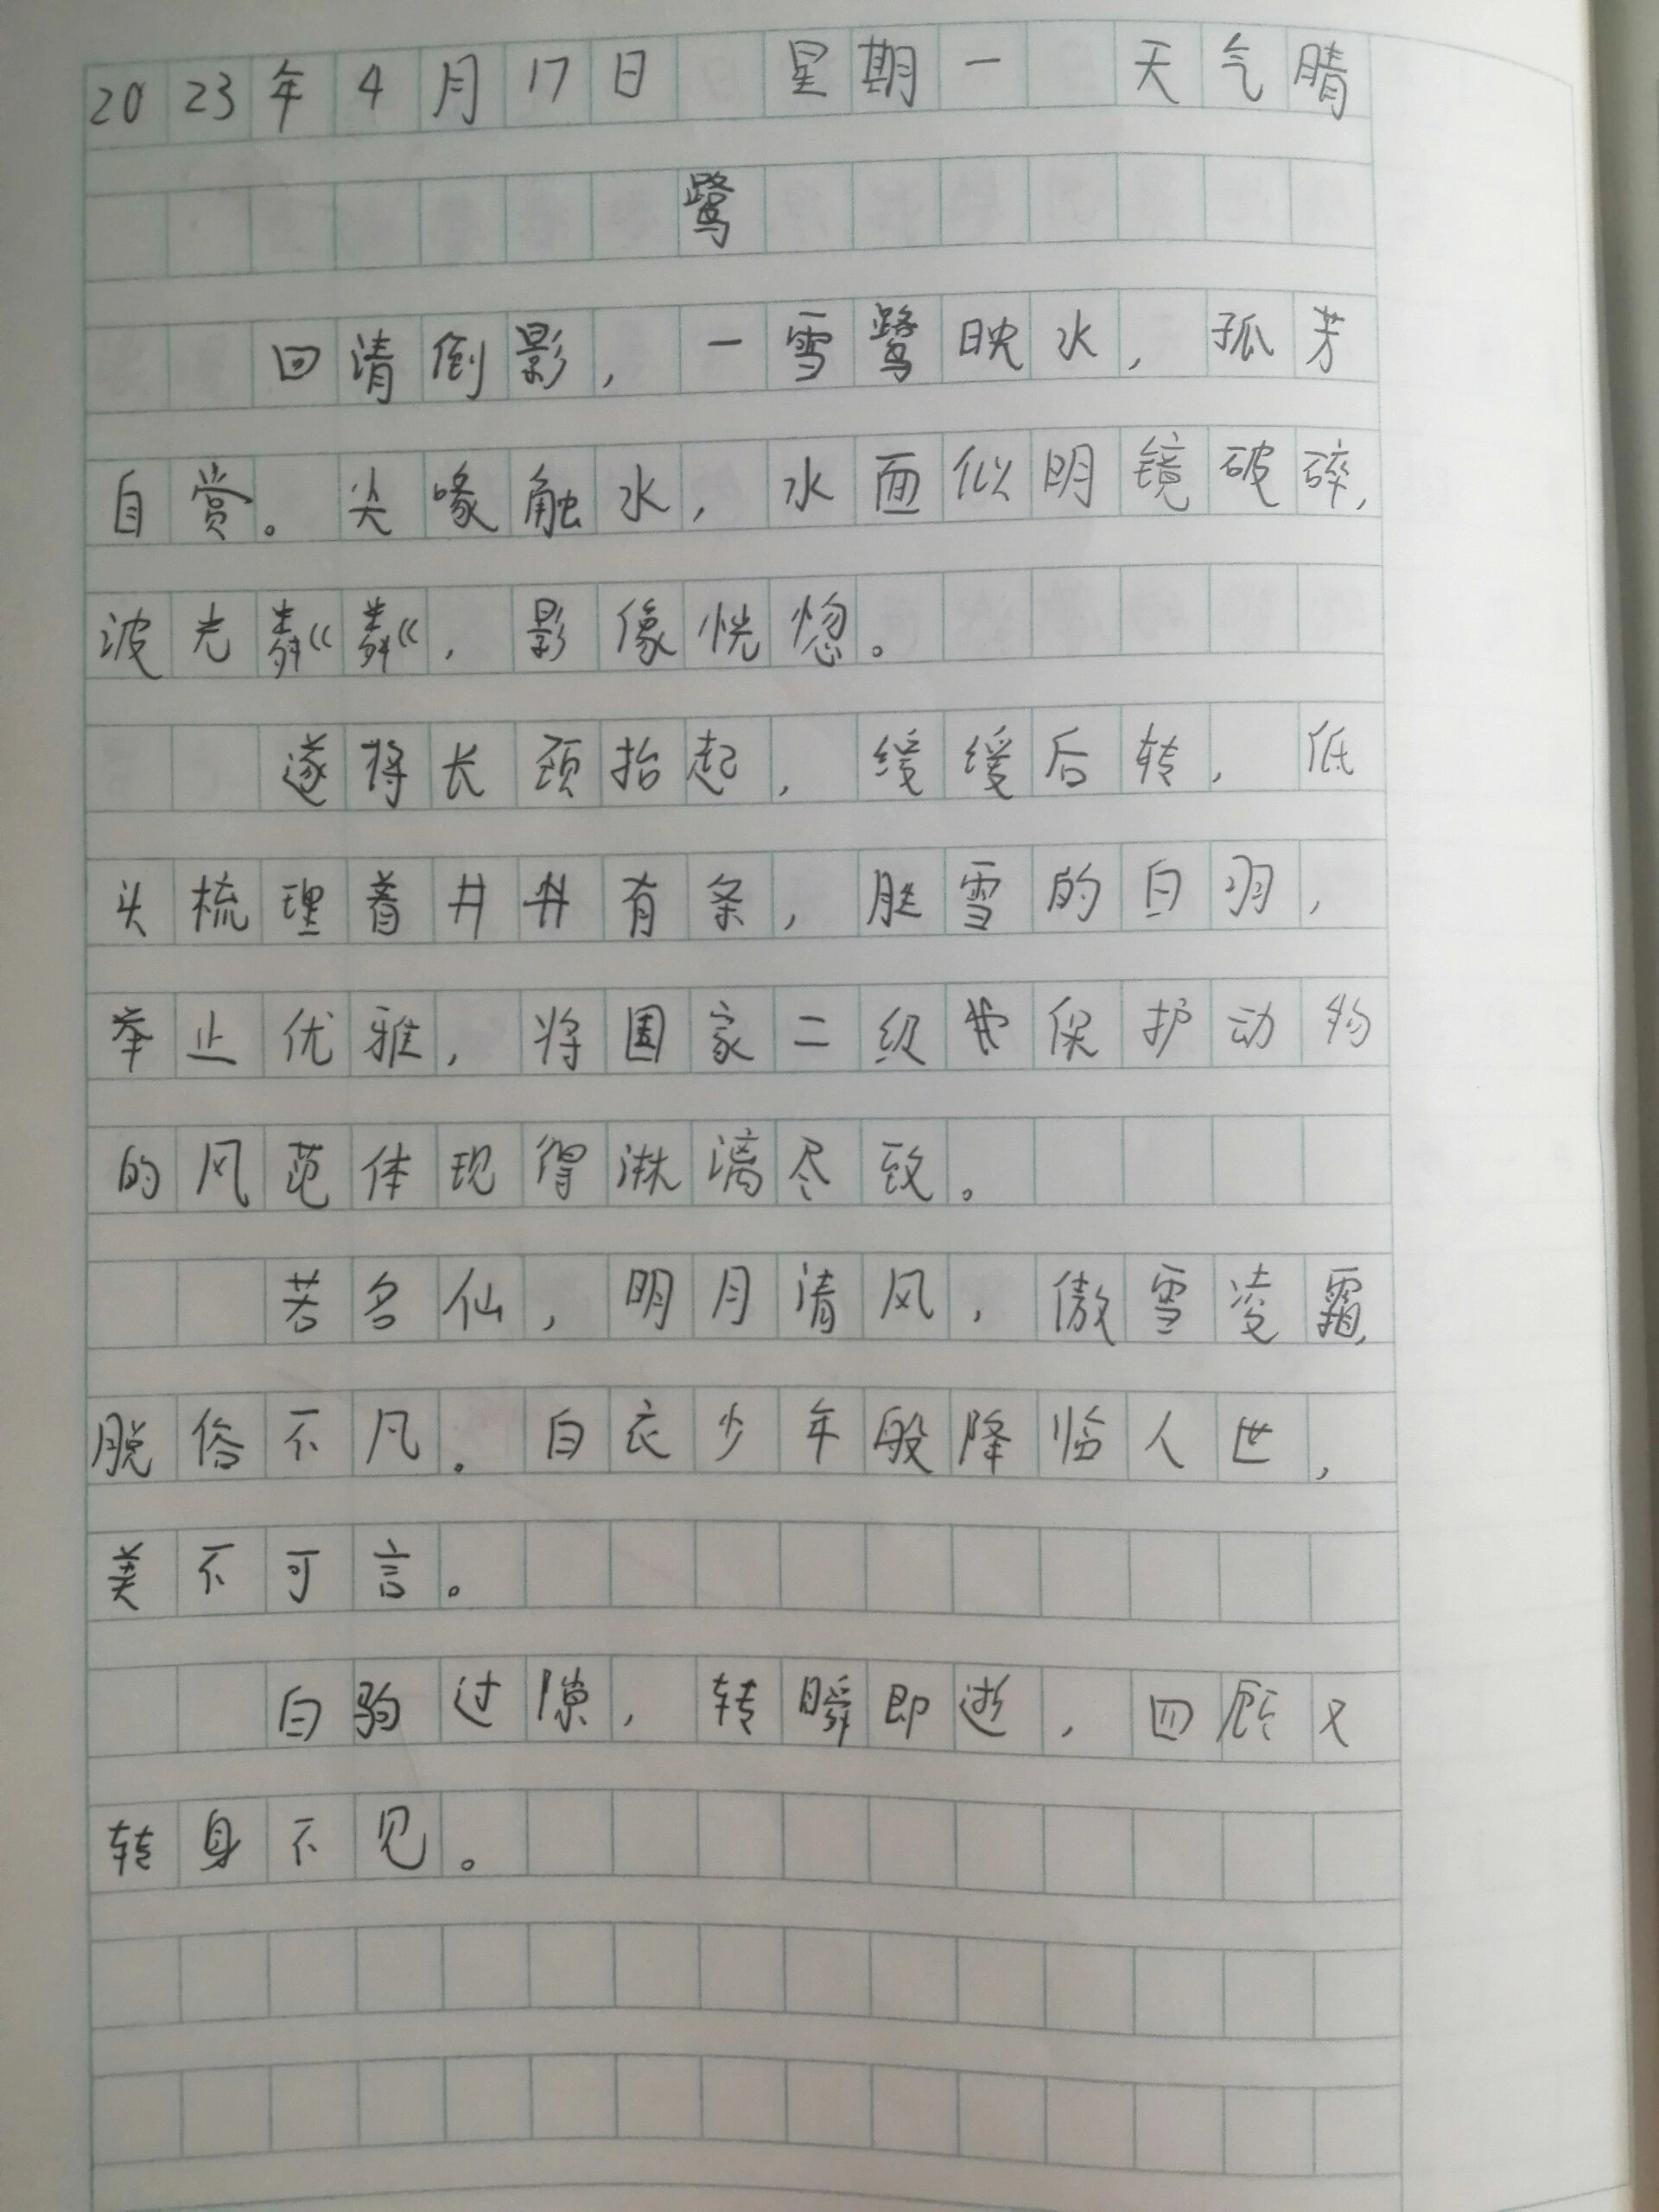 2023年4月17日 星期一 天气晴
鹭
回清倒影，一雪鹭映水，孤芳
自赏。尖喙触水，水面似明镜破碎，
波光粼粼，影像恍惚。
遂将长颈抬起，缓缓后转，低
头梳理着井井有条，胜雪的白羽，
举止优雅，将国家二级保护动物
的风范体现得淋漓尽致。
若名仙，明月清风，傲雪凌霜，
脱俗不凡。白衣少年般降临人世，
美不可言。
白驹过隙，转瞬即逝，回顾又
转身不见。